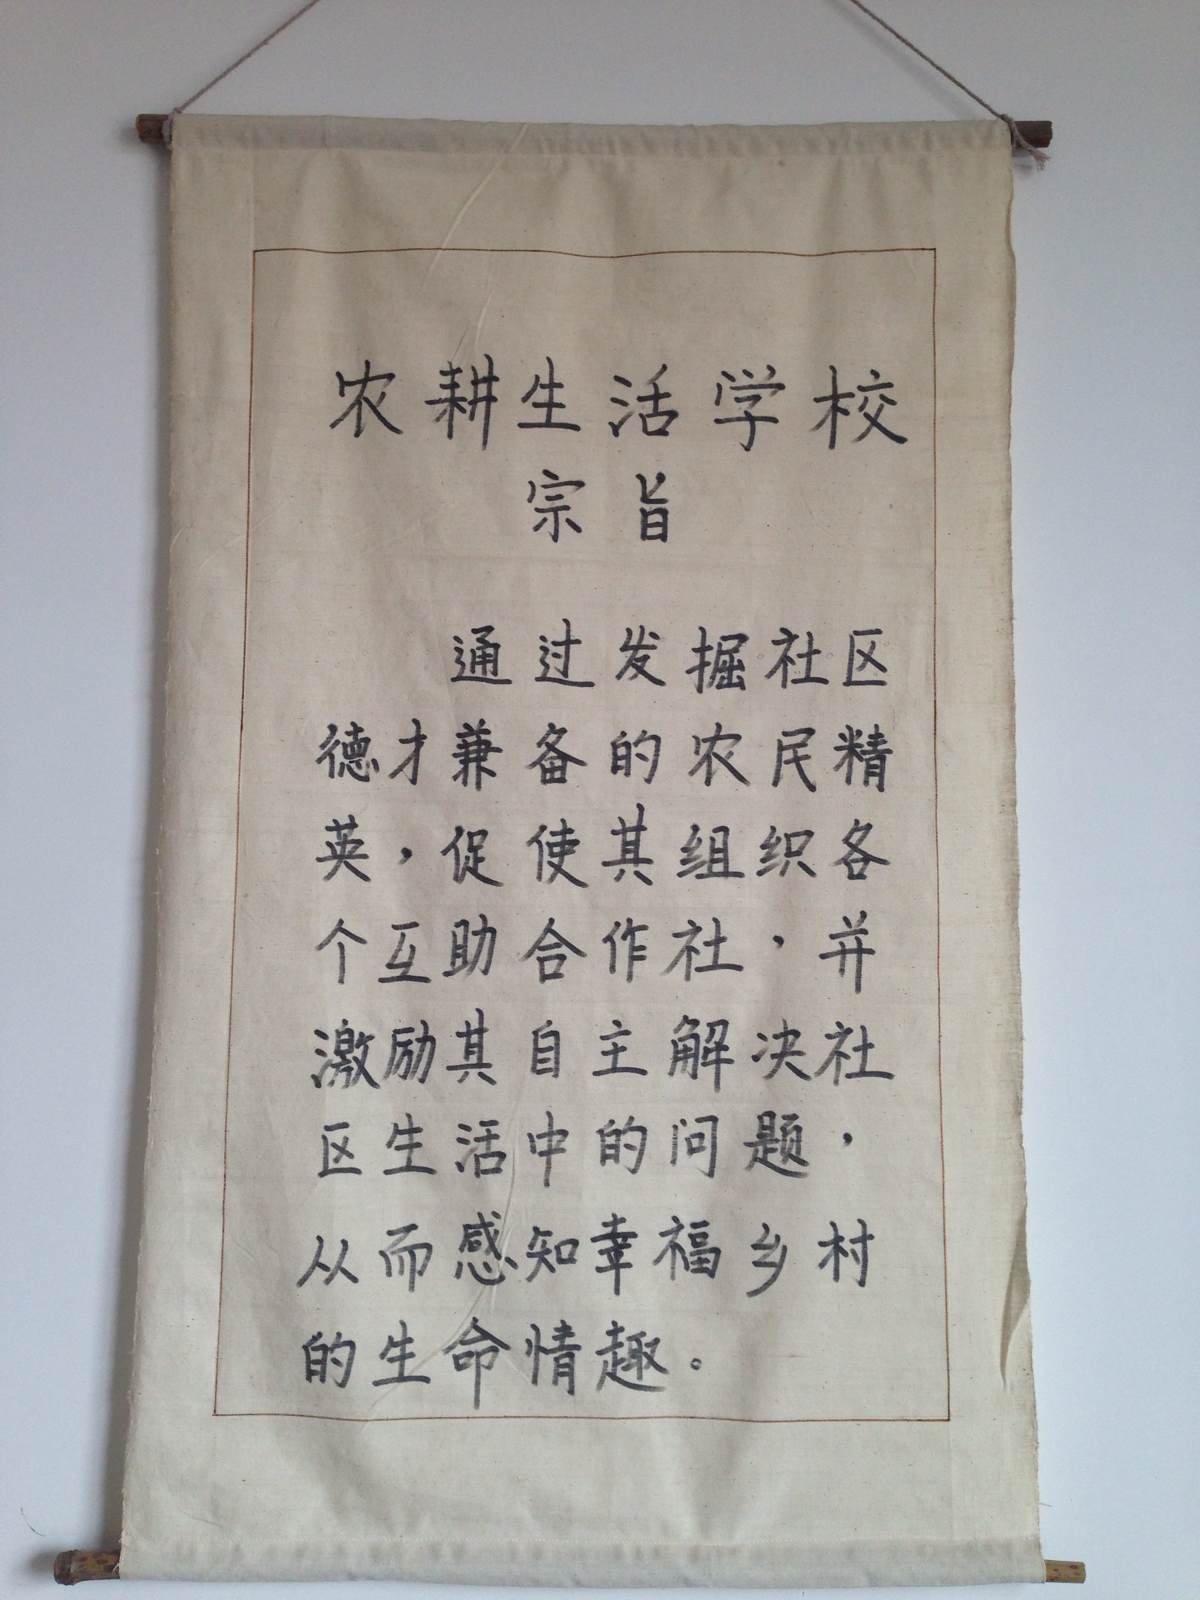 农耕生活学校
宗旨
通过发掘社区
德才兼备的农民精
英，促使其组织各
个互助合作社，并
激励其自主解决社
区生活中的问题，
从而感知幸福乡村
的生命情趣。